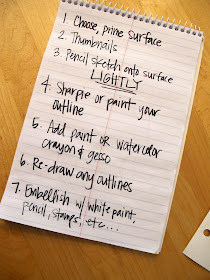 1. Choose, prime surface
2. Thumbnails
3. Pencil sketch onto surface
LIGHTLY
4. Sharpie or paint your
outline
5. Add paint or watercolor
crayon & gesso
6. Re-draw any outlines
7. Embellish w/ white paint,
pencil, stamps, etc...